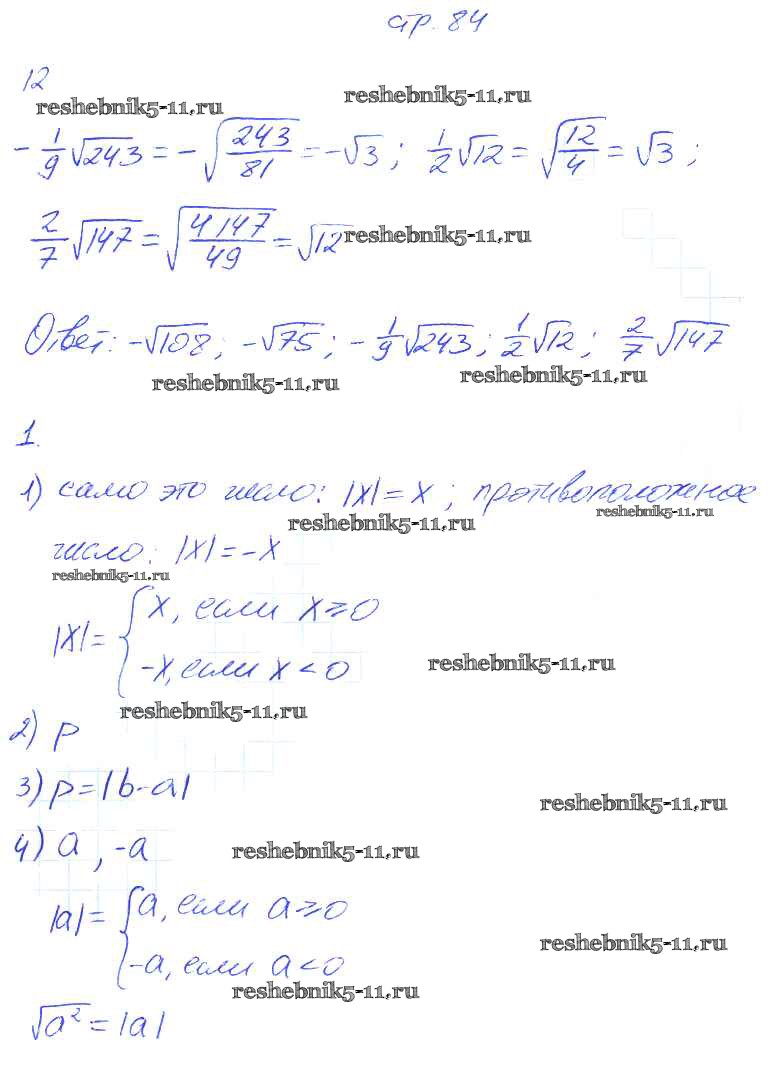 стр. 84
12
reshebnik5-11.ru reshebnik5-11.ru
-1/9√243 = -√(243/81) = -√3; 1/2√12 = √(12/4) = √3;
2/7√147 = √(4147/49) = √12 reshebnik5-11.ru
Ответ: -√108; -√75; -1/9√243; 1/2√12; 2/7√147
reshebnik5-11.ru reshebnik5-11.ru
1.
1) само это число: |x| = x; противоположное
reshebnik5-11.ru reshebnik5-11.ru
число: |x| = -x
reshebnik5-11.ru
|x| = { x, если x ≥ 0
-x, если x < 0
reshebnik5-11.ru
reshebnik5-11.ru
2) p
3) p = |b-a|
reshebnik5-11.ru
4) a, -a
reshebnik5-11.ru
|a| = { a, если a ≥ 0
-a, если a < 0
reshebnik5-11.ru
reshebnik5-11.ru
√a² = |a|